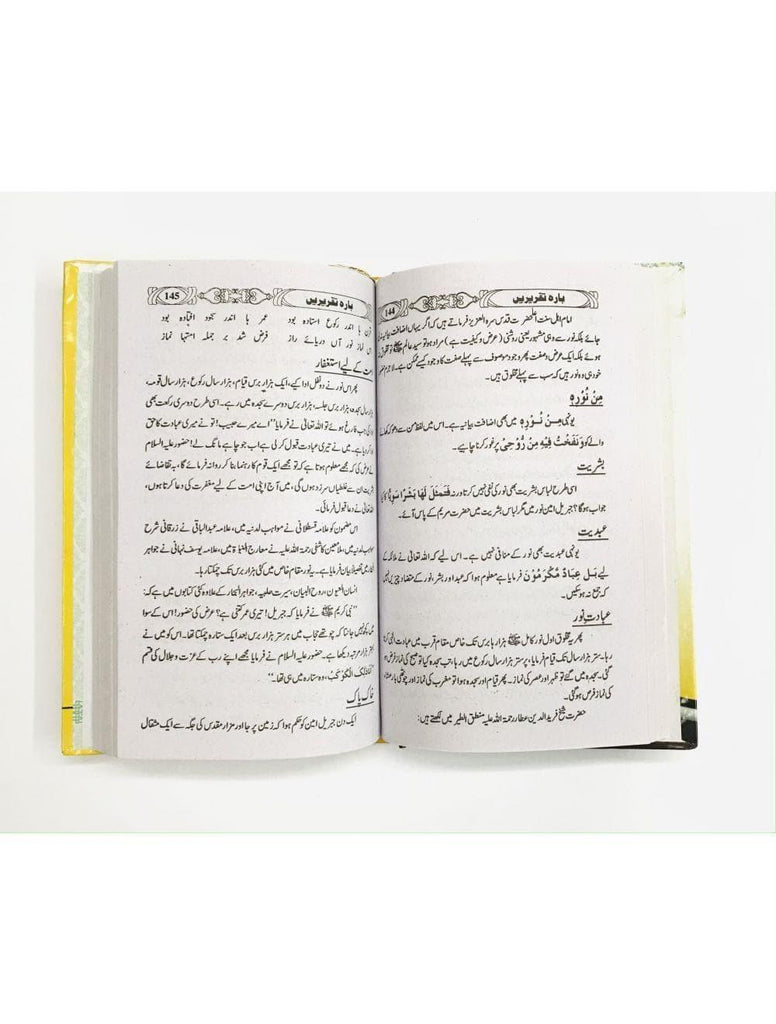 بارہ تقریریں
144
امام اہل سنت اعلیٰ حضرت قدس سرہ العزیز فرماتے ہیں کہ اگر یہاں اضافت بیانیہ لی
جائے بلکہ نور سے وہی مشہور یعنی روشنی (عرض و کیفیت ہے) مراد ہو تو سید عالم ﷺ تو مخلوق
ہوئے بلکہ ایک عرض و صفت پھر وجود موصوف سے پہلے صفت کا وجود کیسے ممکن ہے۔ لا جرم حضور
خود ہی وہ نور ہیں کہ سب سے پہلے مخلوق ہیں۔
مِنْ نُوْرِہٖ
یونہی مِنْ نُوْرِہٖ میں بھی اضافت بیانیہ ہے۔ اس میں لفظ من سے دھوکہ کھانے
والے کو وَنَفَخْتُ فِيْهِ مِنْ رُّوْحِيْ پر غور کرنا چاہیے۔
بشریت
اسی طرح لباس بشریت بھی نور کی نفی نہیں کرتا ورنہ فَتَمَثَّلَ لَهَا بَشَرًا سَوِيًّا کا کیا
جواب ہوگا؟ جبریل امین نور ہیں مگر لباس بشریت میں حضرت مریم کے پاس آئے۔
عبدیت
یونہی عبدیت بھی نور کے منافی نہیں ہے۔ اس لیے کہ اللہ تعالیٰ نے ملائکہ کے
لیے بَلْ عِبَادٌ مُّكْرَمُوْنَ فرمایا ہے معلوم ہوا کہ عبد اور بشر، نور کے متضاد چیزیں نہیں
کہ جمع نہ ہوسکیں۔
عبادت نور
پھر یہ مخلوق اول نور کامل ﷺ ہزارہا برس تک خاص مقام قرب میں عبادت الٰہی کرتا
رہا۔ ستر ہزار سال تک قیام فرمایا، پر ستر ہزار سال رکوع میں رہا، جب سجدہ کیا تو صبح کی نماز فرض
گئی۔ سجدہ میں گئے تو ظہر اور عصر کی نماز۔ پھر قیام اور سجدہ ہوا تو مغرب کی نماز اور چوتھی بار عشاء
کی نماز فرض ہوگئی۔
حضرت شیخ فرید الدین عطار رحمۃ اللہ علیہ منطق الطیر میں لکھتے ہیں:
بارہ تقریریں
145
قرن ہا اندر رکوع استادہ بود عمر ہا اندر سجود افتادہ بود
از نماز نور آں دریائے راز فرض شد بر جملہ امتہا نماز
امت کے لیے استغفار
پھر اس نور نے دو نفل ادا کیے، ایک ہزار برس قیام، ہزار سال رکوع، ہزار سال قومہ،
ہزار سال سجدہ، ہزار برس جلسہ، ہزار برس دوسرے سجدہ میں رہے۔ اسی طرح دوسری رکعت بھی
کی جب فارغ ہوئے تو اللہ تعالیٰ نے فرمایا ”اے میرے حبیب! تو نے میری عبادت کا حق
ادا کردیا۔ میں نے تیری عبادت قبول کرلی ہے اب جو چاہے مانگ لے! حضور علیہ السلام
نے عرض کی کہ مجھے معلوم ہوتا ہے کہ تو مجھے ایک قوم کا رہنما بنا کر روانہ فرمائے گا، بہ تقاضائے
بشریت ان سے غلطیاں سرزد ہوں گی، میں آج اپنی امت کے لیے مغفرت کی دعا کرتا ہوں،
اللہ تعالیٰ نے دعا قبول فرمائی۔
اس مضمون کو علامہ قسطلانی نے مواہب لدنیہ میں، علامہ عبدالباقی نے زرقانی شرح
مواہب لدنیہ میں، ملا معین کاشفی رحمۃ اللہ علیہ نے معارج النبوۃ میں، علامہ یوسف نبہانی نے جواہر
البحار میں تفصیلاً بیان فرمایا ہے۔ یہ نور مقام خاص میں کئی ہزار برس تک چمکتا رہا۔
انسان العیون، روح البیان، سیرت حلبیہ، جواہر البحار کے علاوہ کئی کتابوں میں ہے کہ:
”نبی کریم ﷺ نے فرمایا کہ جبریل! تیری عمر کتنی ہے؟ عرض کی حضور! اس کے سوا
میں کچھ نہیں جانتا کہ چوتھے حجاب میں ہر ستر ہزار برس بعد ایک ستارہ چمکتا تھا۔ اس کو میں نے
بہتر ہزار مرتبہ دیکھا ہے۔ حضور علیہ السلام نے فرمایا مجھے اپنے رب کے عزت و جلال کی قسم
اَنَا ذٰلِكَ الْكَوْكَبُ، وہ ستارہ میں ہی تھا۔“
خاک پاک
ایک دن جبریل امین کو حکم ہوا کہ زمین پر جا اور مزار مقدس کی جگہ سے ایک مثقال